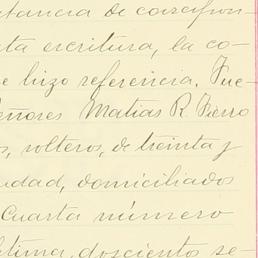 tancia de conf
ta escritura, la co-
e hizo referencia. Fue-
eñores Matias R. Fierro
s, solteros, de treinta y
edad, domiciliados
Cuarta número
tima, doscientos se-